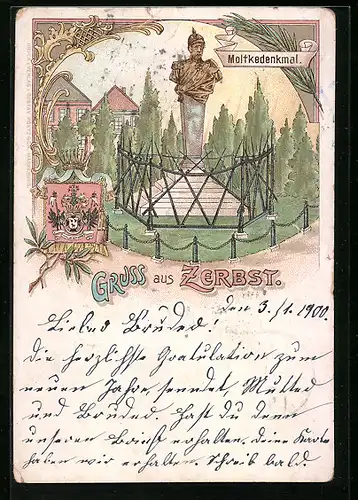 Moltkedenkmal.
GRUSS aus ZERBST.
den 3./1. 1900.
Liebes Bruder!
Die herzlichste Gratulation zum
neuen Jahre, sendet Mutter
und Bruder. Hast Du denn
unseren Brief erhalten, deine Karte
haben wir erhalten. Schreib bald.